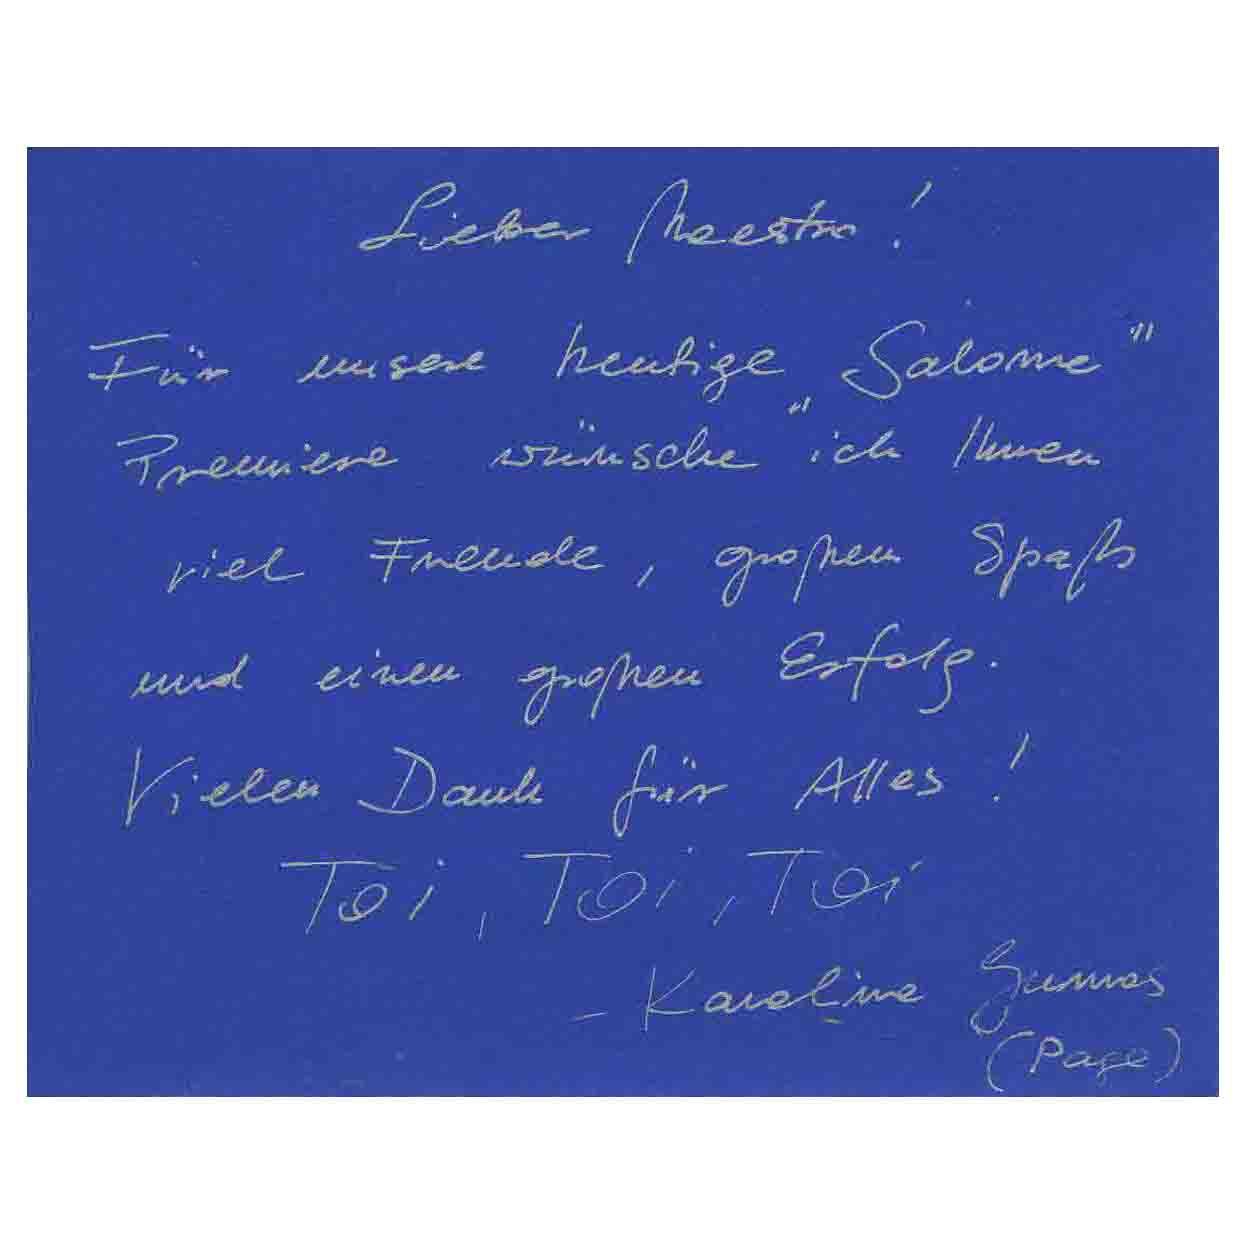 Lieber Maestro!
Für unsere heutige „Salome"
Premiere wünsche ich Ihnen
viel Freude, großen Spaß
und einen großen Erfolg.
Vielen Dank für Alles!
Toi, Toi, Toi
- Karolina
(Page)